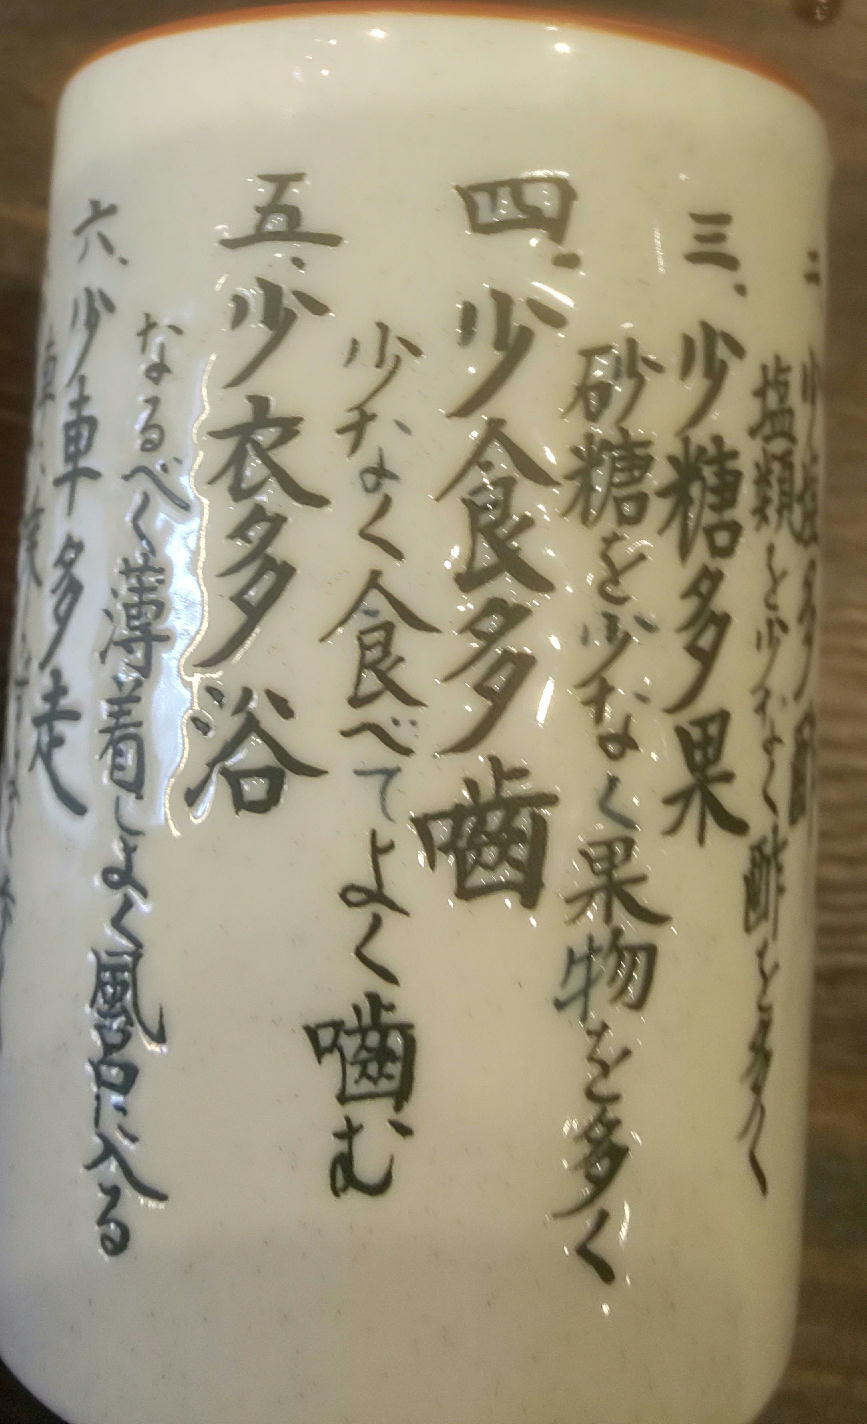 二、少塩多酢
塩類を少なく酢を多く
三、少糖多果
砂糖を少なく果物を多く
四、少食多噛
少なく食べてよく噛む
五、少衣多浴
なるべく薄着しよく風呂に入る
六、少車多走